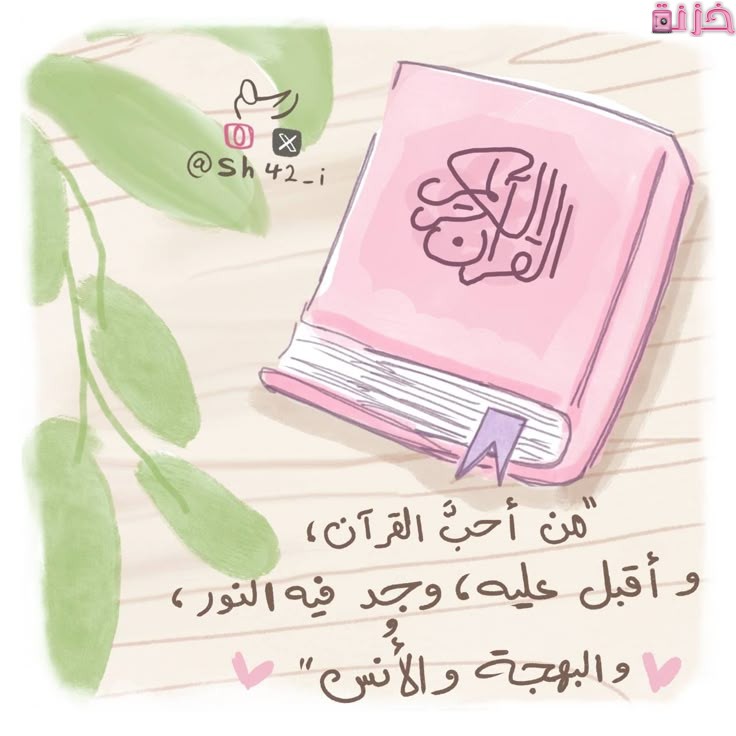 خزنة
رسم
@sh42_i
القرآن الكريم
"من أحبَّ القرآن،
و أقبل عليه، وجد فيه النور،
و البهجة و الأُنس"